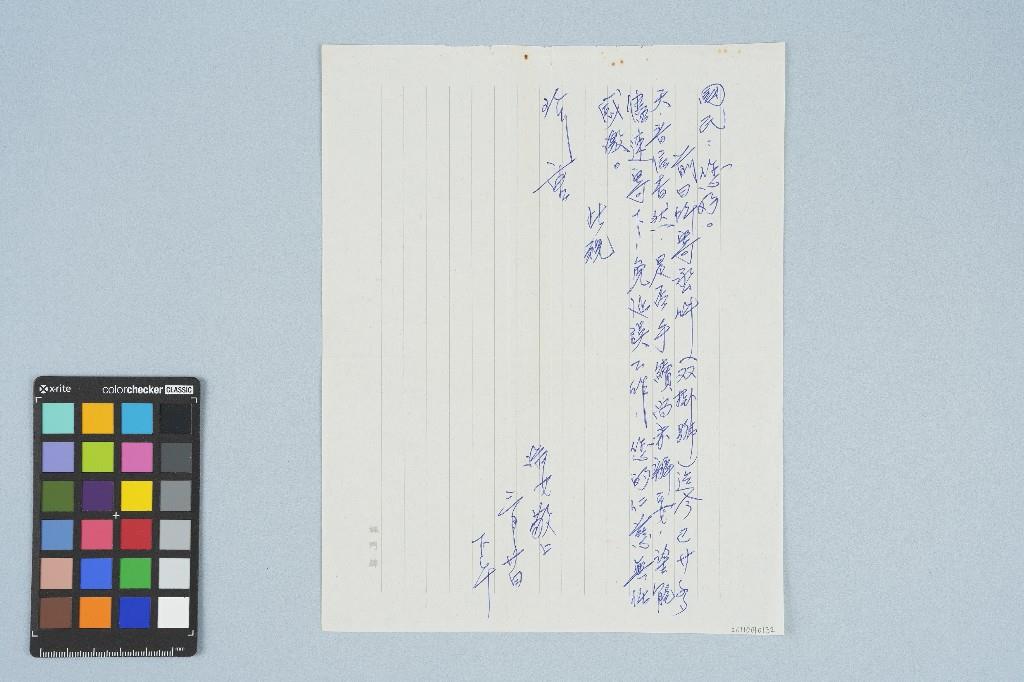 國民：您好。
前日所寄函件（双掛號）迄今已廿多
天，音信杳然，是否手續尚未辦妥，望能
儘速寄下，免延誤工作！您的仁慈無比
感激。
此祝
珍重
敬上
二月廿日
下午
x-rite
colorchecker CLASSIC